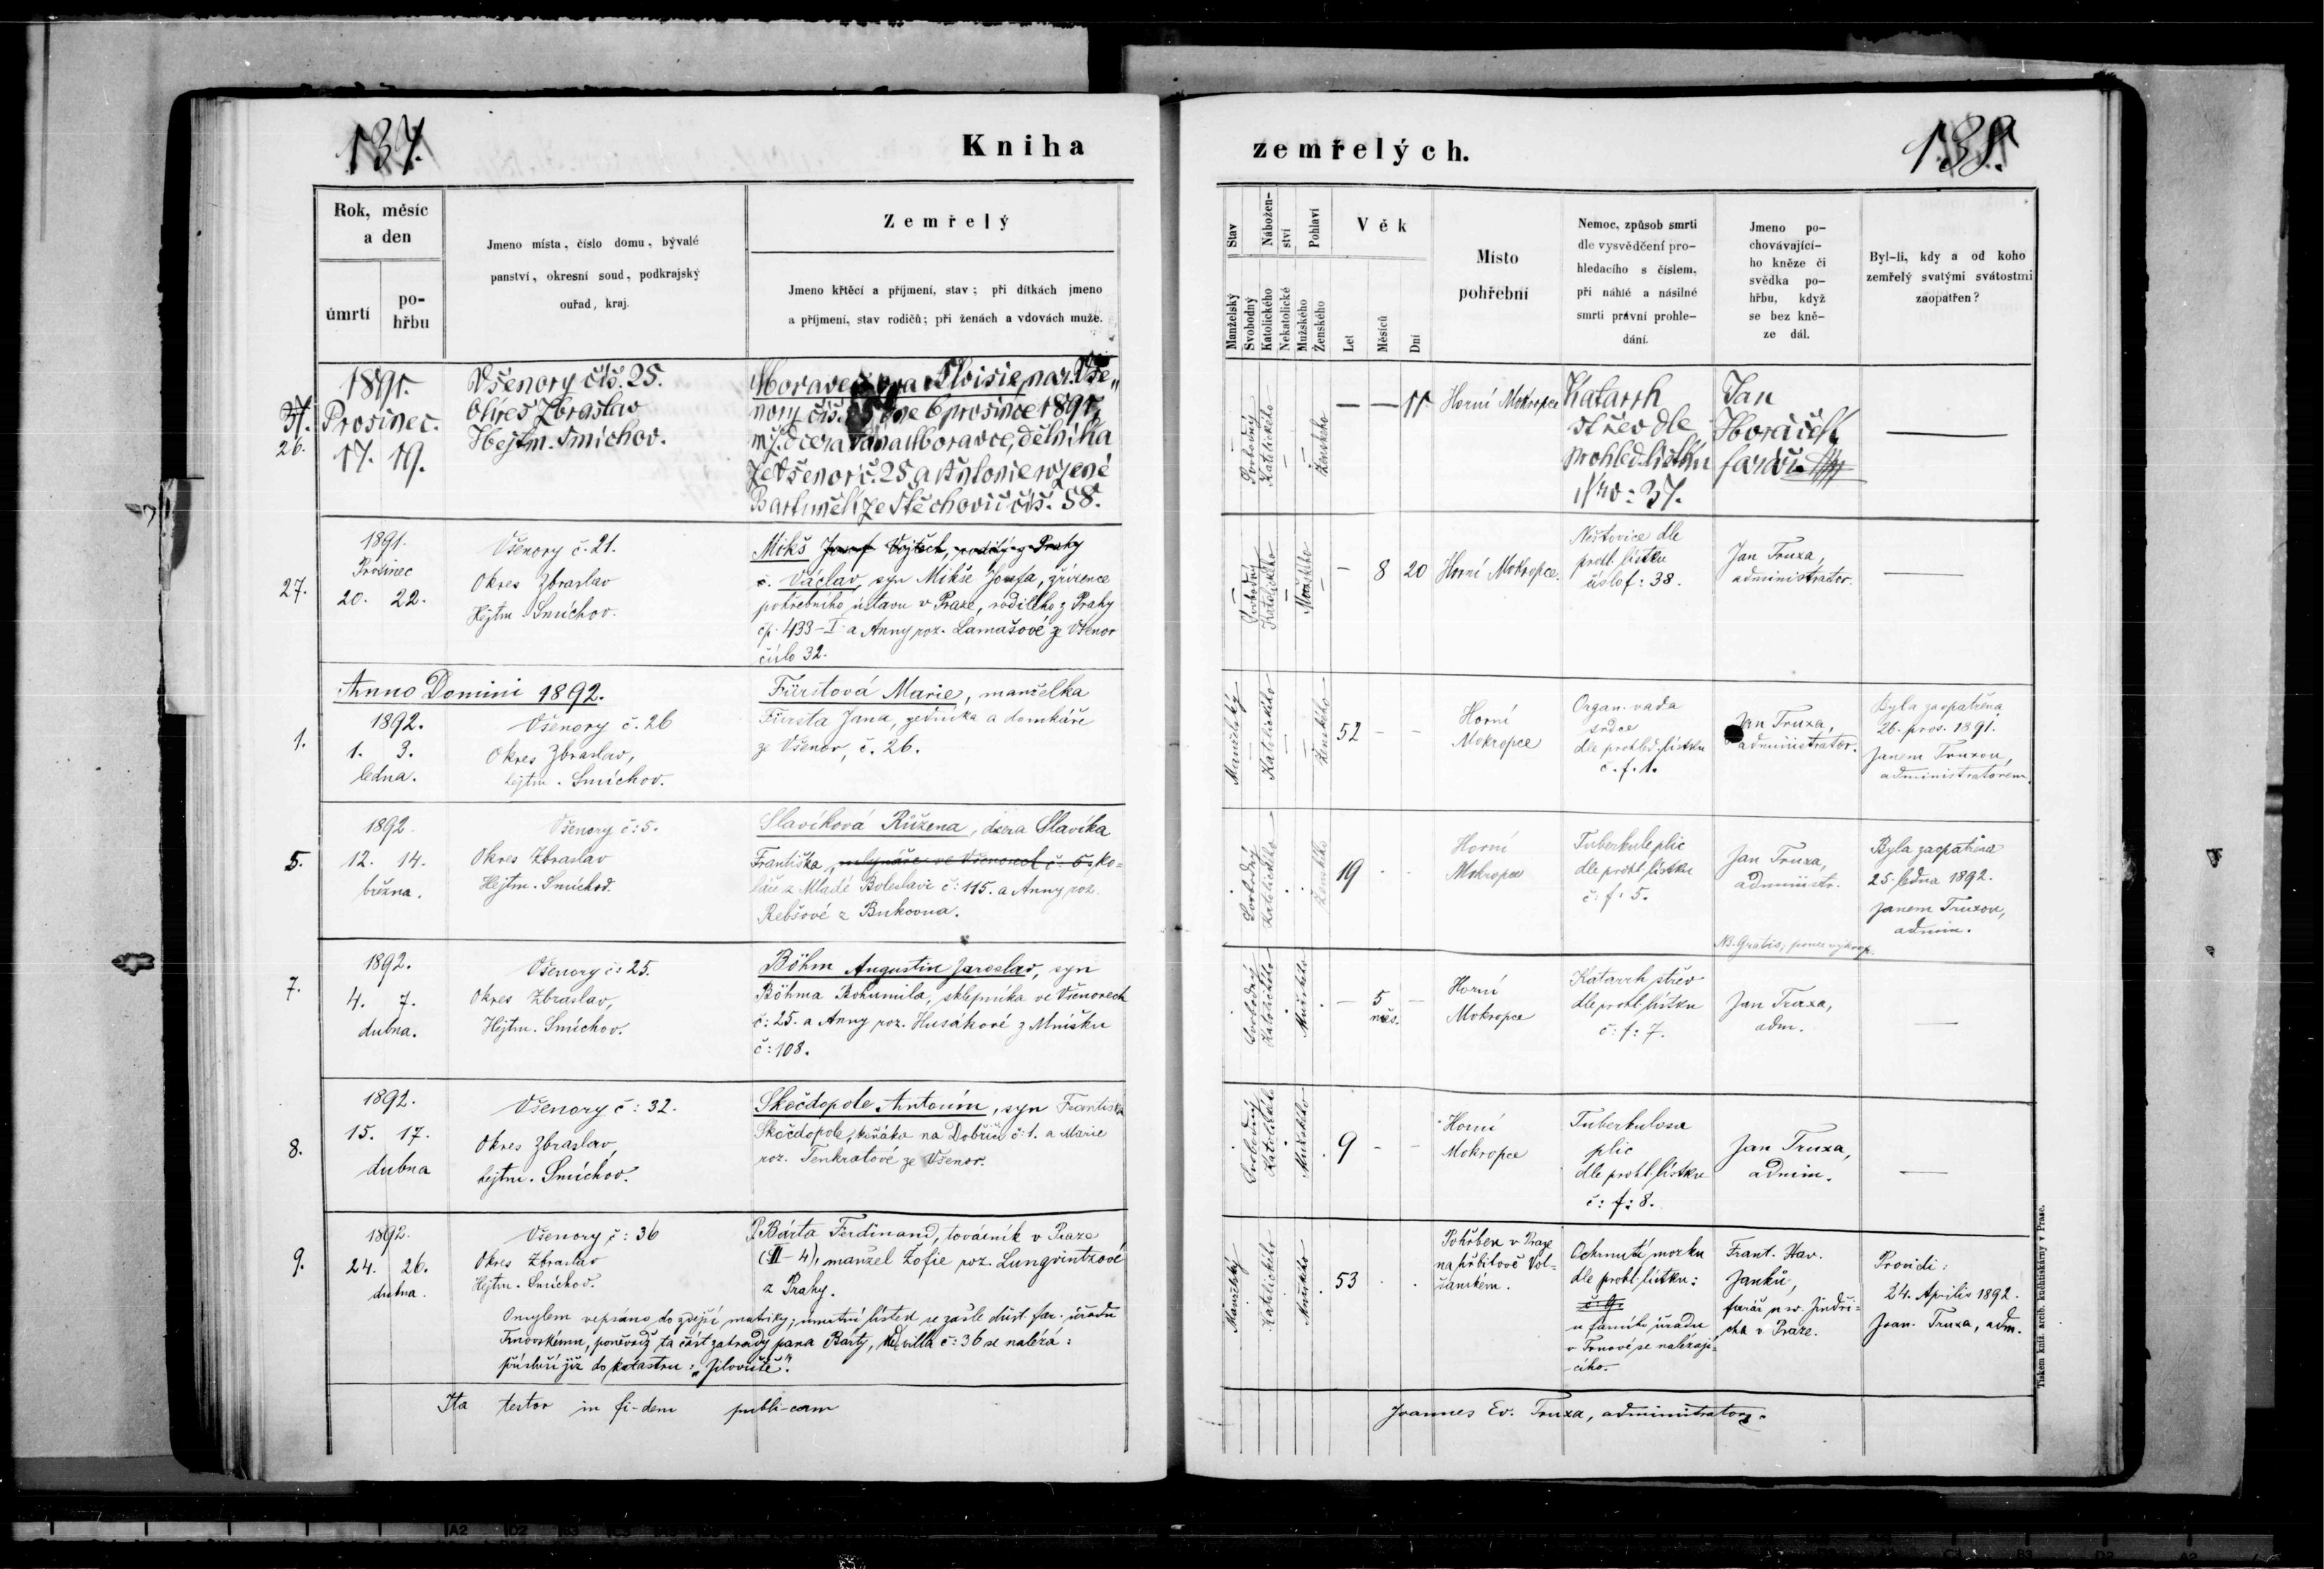 137.
Kniha
Rok, měsíc
a den
úmrtí
po-
hřbu
Jmeno místa, číslo domu, bývalé
panství, okresní soud, podkrajský
ouřad, kraj.
Zemřelý
Jmeno křtěcí a příjmení, stav; při dítkách jmeno
a příjmení, stav rodičů; při ženách a vdovách muže.
37.
26.
1891.
Prosinec.
17. 19.
Všenory čís. 25.
Okres Zbraslav
Hejtm. Smíchov.
Moravcova Aloisie, nar. Vše„
nory čís. 25 dne 6 prosince 1891,
mž. dcera Jana Moravce, dělníka
ze Všenor č. 25 a Antonie rozené
ze Štěchovic čís. 58.
27.
1891.
Prosinec
20. 22.
Všenory č. 21.
Okres Zbraslav
Hejtm Smíchov.
Mikš Josef Vojtěch, rodilý z Prahy
Václav, syn Mikše Josefa, zřízence
pohřebního ústavu v Praze, rodilého z Prahy
čp. 433-I a Anny roz. Lamašové ze Všenor
číslo 32.
Anno Domini 1892.
1.
1892.
1. 3.
ledna.
Všenory č. 26
Okres Zbraslav,
hejtm. Smíchov.
Fürstová Marie, manželka
Fürsta Jana, zedníka a domkáře
ze Všenor, č. 26.
5.
1892.
12. 14.
března.
Všenory č: 5.
Okres Zbraslav
Hejtm. Smíchov.
Slavíková Růžena, dcera Slavíka
Františka, mlynáře ve Všenorech č. 5, ko-
láře z Mladé Boleslavi č: 115. a Anny roz.
Rebšové z Bukovna.
7.
1892.
4. 7.
dubna.
Všenory č: 25.
Okres Zbraslav,
Hejtm. Smíchov.
Böhm Augustin Jaroslav, syn
Böhma Bohumila, sklepníka ve Všenorech
č: 25. a Anny roz. Husákové z Mníšku
č: 108.
8.
1892.
15. 17.
dubna
Všenory č: 32.
Okres Zbraslav,
hejtm. Smíchov.
Skočdopole Antonín, syn Františka
Skočdopole, na Dobříši č: 1. a Marie
roz. Tenkratové ze Všenor.
9.
1892.
24. 26.
dubna.
Všenory č: 36
Okres Zbraslav
Hejtm. Smíchov.
P. Bárta Ferdinand, továrník v Praze
(II-4), manžel Žofie roz. Lungvintzové
z Prahy.
Omylem vepsáno do zdejší matriky; úmrtní lístek se zašle důst. far. úřadu
Trnovskému, poněvadž ta část zahrady pana Bárty, kde villa č: 36 se nalézá:
přísluší již do katastru: „Jíloviště".
Ita testor in fi-dem publi-cam
zemřelých.
138.
Stav
Manželský
Svobodný
Nábožen-
ství
Katolického
Nekatolické
Pohlaví
Mužského
Ženského
Věk
Let
Měsíců
Dní
Místo
pohřební
Nemoc, způsob smrti
dle vysvědčení pro-
hledacího s číslem,
při náhlé a násilné
smrti právní prohle-
dání.
Jmeno po-
chovávající-
ho kněze či
svědka po-
hřbu, když
se bez kně-
ze dál.
Byl-li, kdy a od koho
zemřelý svatými svátostmi
zaopatřen?
Svobodný
Katolického
Ženského
— — 11
Horní Mokropce
Katarrh
střev dle
prohled. lístku
Nro: 37.
Jan
Horáček
farář
—
Svobodný
Katolického
Mužského
— 8 20
Horní Mokropce.
Neštovice dle
prohl. lístku
číslo f: 38.
Jan Truxa,
administrator.
—
Manželský
Katolického
Ženského
52 - -
Horní
Mokropce
Organ. vada
srdce
dle prohled. lístku
č. f. 1.
Jan Truxa,
administrator.
Byla zaopatřena
26. pros. 1891.
Janem Truxou,
administratorem.
Svobodný
Katolického
Ženského
19
Horní
Mokropce
Tuberkule plic
dle prohl. lístku
č: f: 5.
Jan Truxa,
administr.
Byla zaopatřena
25. ledna 1892.
Janem Truxou,
admin.
NB. Gratis;
Svobodný
Katolického
Mužského
— 5 —
měs.
Horní
Mokropce
Katarrh střev
dle prohl. lístku
č: f: 7.
Jan Truxa,
adm.
—
Svobodný
Katolického
Mužského
9 - -
Horní
Mokropce
Tuberkulosa
plic
dle prohl. lístku
č: f: 8.
Jan Truxa,
admin.
—
Manželský
Katolického
Mužského
53
Pohřben v Praze
na hřbitově Vol-
šanském.
Ochrnutí mozku
dle prohl. lístku:
č. 9.
u farního úřadu
v Trnové se nalézají-
cího.
Frant. Hav.
Janků,
farář u sv. Jindři-
cha v Praze.
Providi:
24. Aprilis 1892.
Joan. Truxa, adm.
Joannes Ev. Truxa, administrator.
Tiskem kníž. arcib. knihtiskárny v Praze.